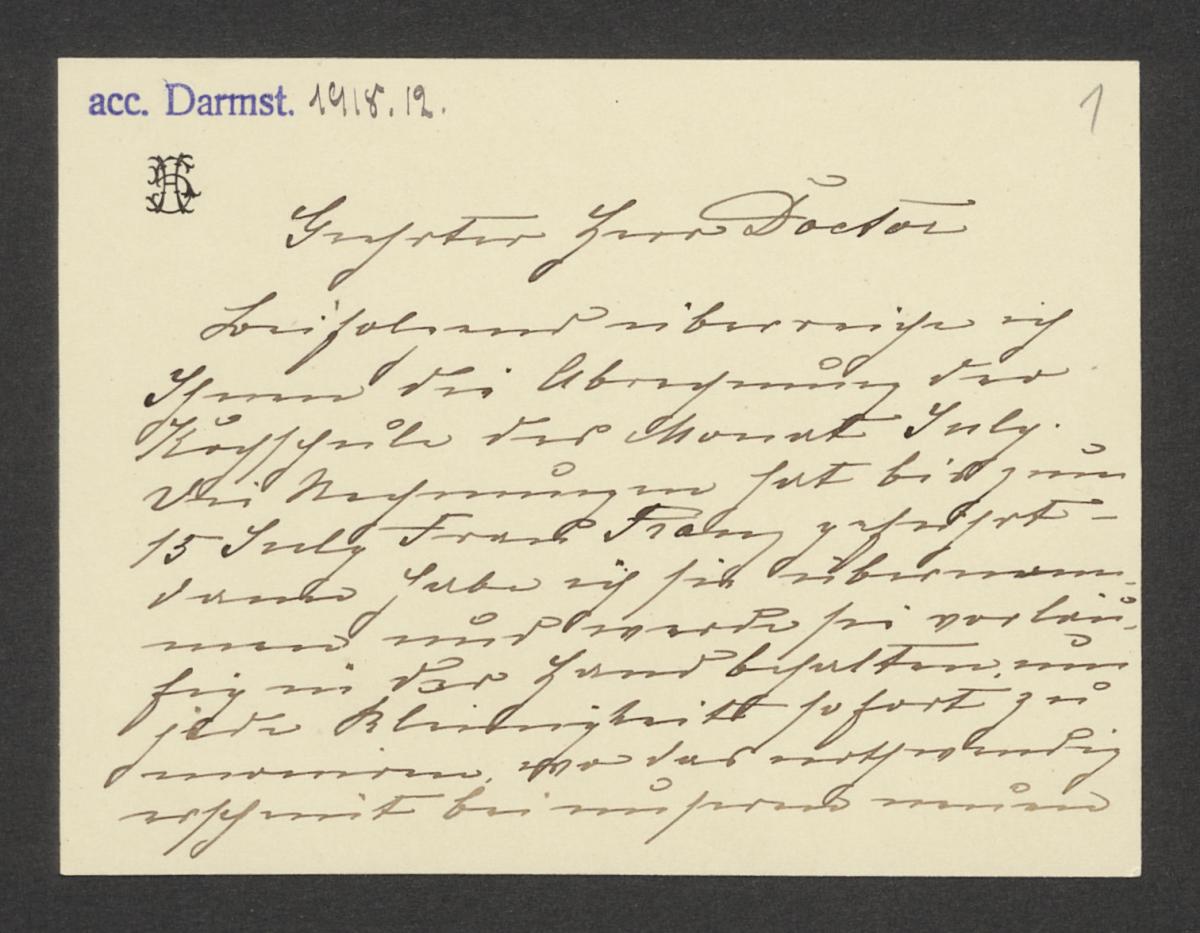 acc. Darmst. 1918.12.
1
HS
Geehrter Herr Doctor
Beifolgend überreiche ich
Ihnen die Abrechnung der
Kochschule des Monat July.
Die Rechnungen hat bis zum
15 July Frau Franz geführt –
dann habe ich sie übernom-
men und werde sie vorläu-
fig in der Hand behalten, um
jede Kleinigkeit sofort zu
moniren, wo das nothwendig
erscheint bei unserem neuen